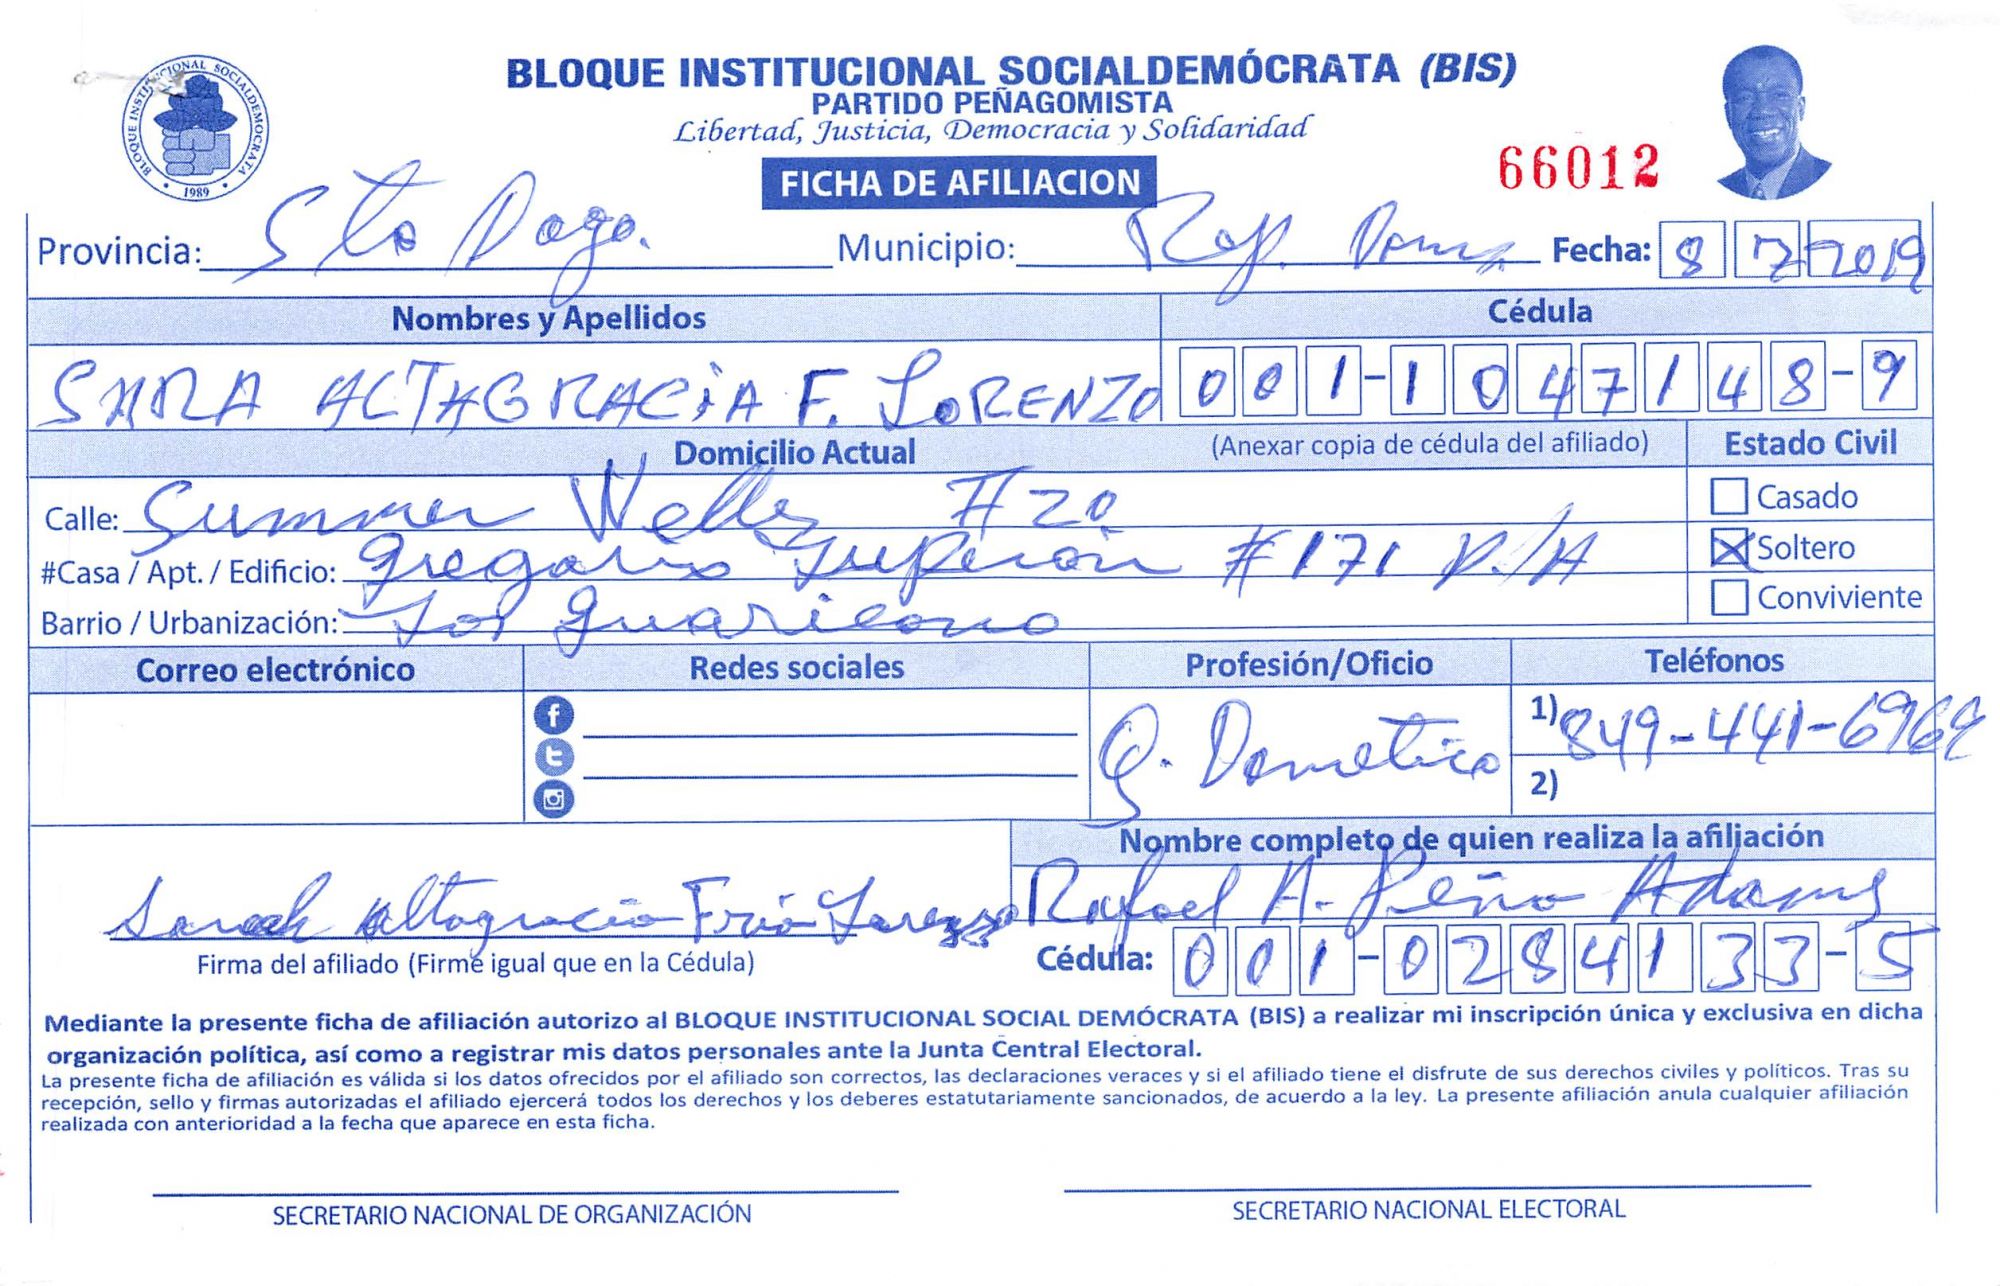 BLOQUE INSTITUCIONAL SOCIALDEMÓCRATA (BIS)
PARTIDO PEÑAGOMISTA
Libertad, Justicia, Democracia y Solidaridad
BLOQUE INSTITUCIONAL SOCIALDEMOCRATA
1989
66012
FICHA DE AFILIACION
Provincia: Sto Dogo. Municipio: Rep. Fecha: 8 7 2019
Nombres y Apellidos Cédula
SARA ALTAGRACIA F. LORENZO 001-1047148-9
Domicilio Actual (Anexar copia de cédula del afiliado) Estado Civil
Calle: Summer Welles #20 Casado
#Casa / Apt. / Edificio: Gregorio #171 P/A Soltero
Barrio / Urbanización: Los Guaricano Conviviente
Correo electrónico Redes sociales Profesión/Oficio Teléfonos
Q. Dometico 1) 849-441-6969
2)
Nombre completo de quien realiza la afiliación
Sarah Altagracia Frias Lorenzo Rafael A. Peña Adames
Firma del afiliado (Firme igual que en la Cédula) Cédula: 001-0284133-5
Mediante la presente ficha de afiliación autorizo al BLOQUE INSTITUCIONAL SOCIAL DEMÓCRATA (BIS) a realizar mi inscripción única y exclusiva en dicha
organización política, así como a registrar mis datos personales ante la Junta Central Electoral.
La presente ficha de afiliación es válida si los datos ofrecidos por el afiliado son correctos, las declaraciones veraces y si el afiliado tiene el disfrute de sus derechos civiles y políticos. Tras su
recepción, sello y firmas autorizadas el afiliado ejercerá todos los derechos y los deberes estatutariamente sancionados, de acuerdo a la ley. La presente afiliación anula cualquier afiliación
realizada con anterioridad a la fecha que aparece en esta ficha.
SECRETARIO NACIONAL DE ORGANIZACIÓN SECRETARIO NACIONAL ELECTORAL